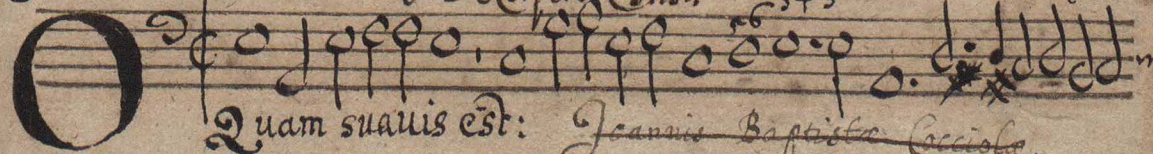 O Quam suauis est: Joannis Baptistæ Cocciolæ